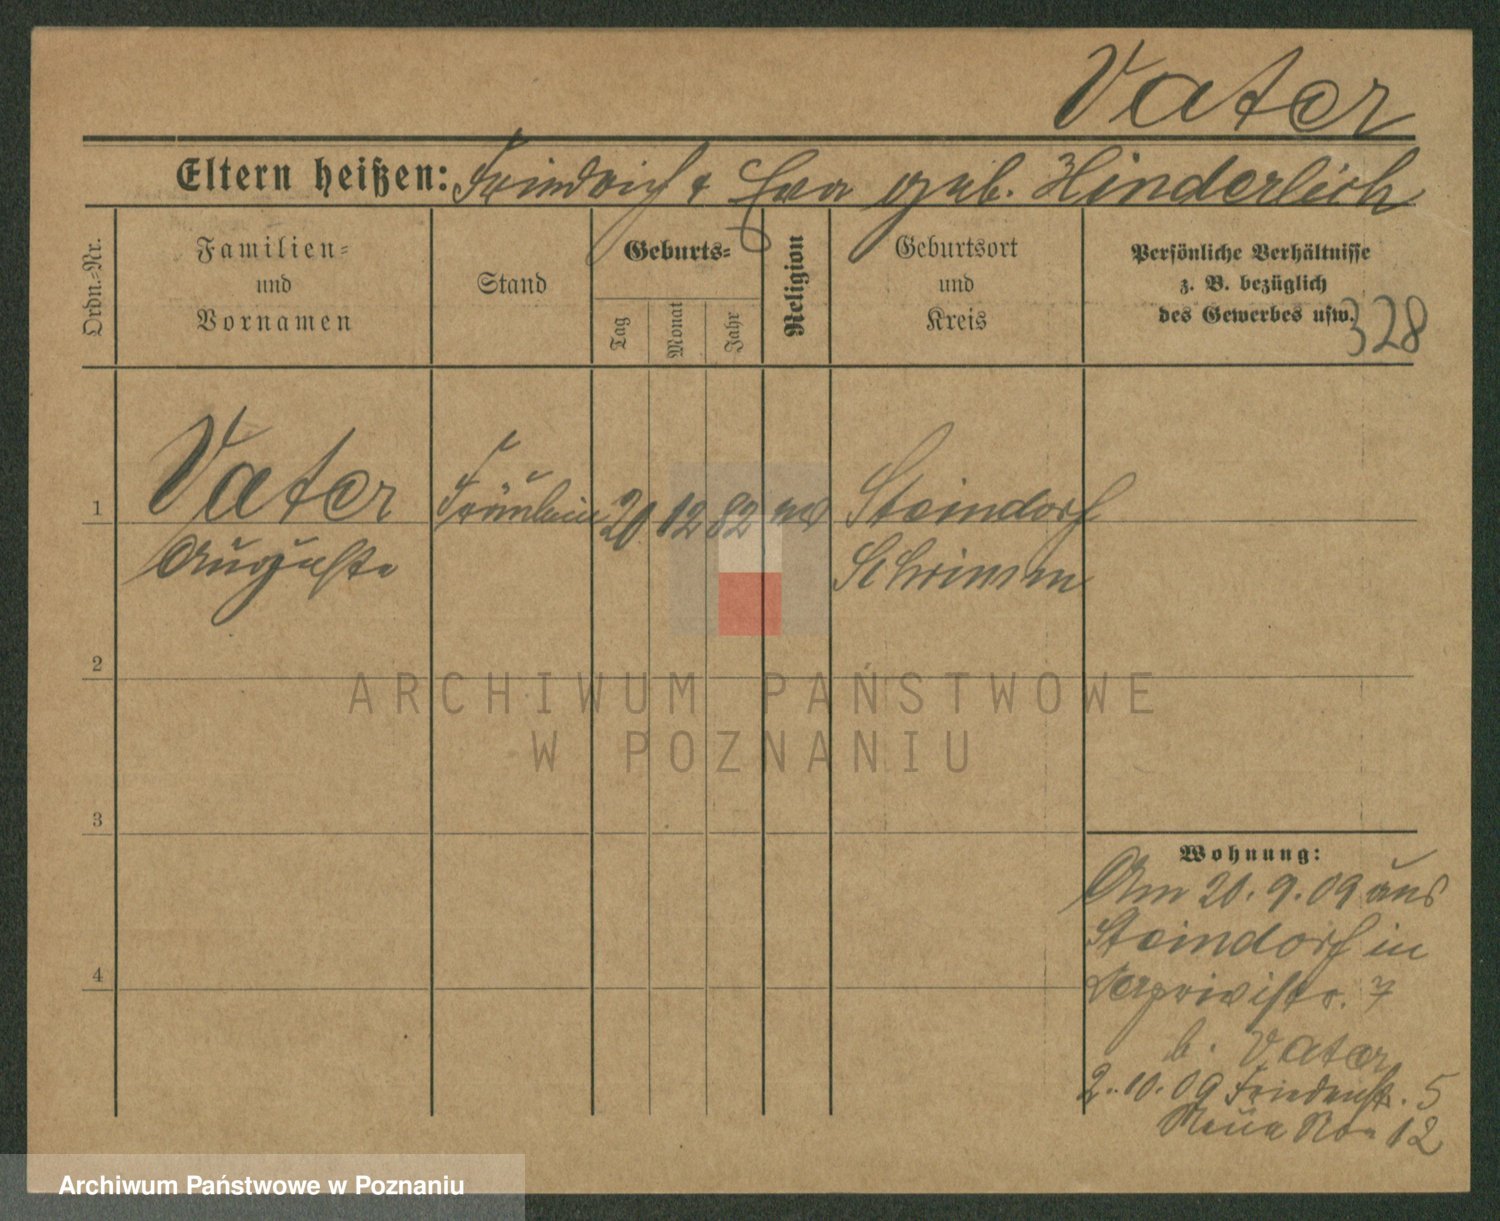 Vater
Eltern heißen: Friedrich & Eva geb. Hinderlich
Ordn.-Nr.
Familien-
und
Vornamen
Stand
Geburts-
Tag
Monat
Jahr
Religion
Geburtsort
und
Kreis
Persönliche Verhältnisse
z. B. bezüglich
des Gewerbes usw.
328
1
Vater
Auguste
Fräulein
20
12
82
ev
Steindorf
Schrimm
2
3
4
Wohnung:
Am 20. 9. 09 aus
Steindorf in
7
b. Vater
2. 10. 09 Friedrichstr. 5
Neue No 12
ARCHIWUM PAŃSTWOWE
W POZNANIU
Archiwum Państwowe w Poznaniu